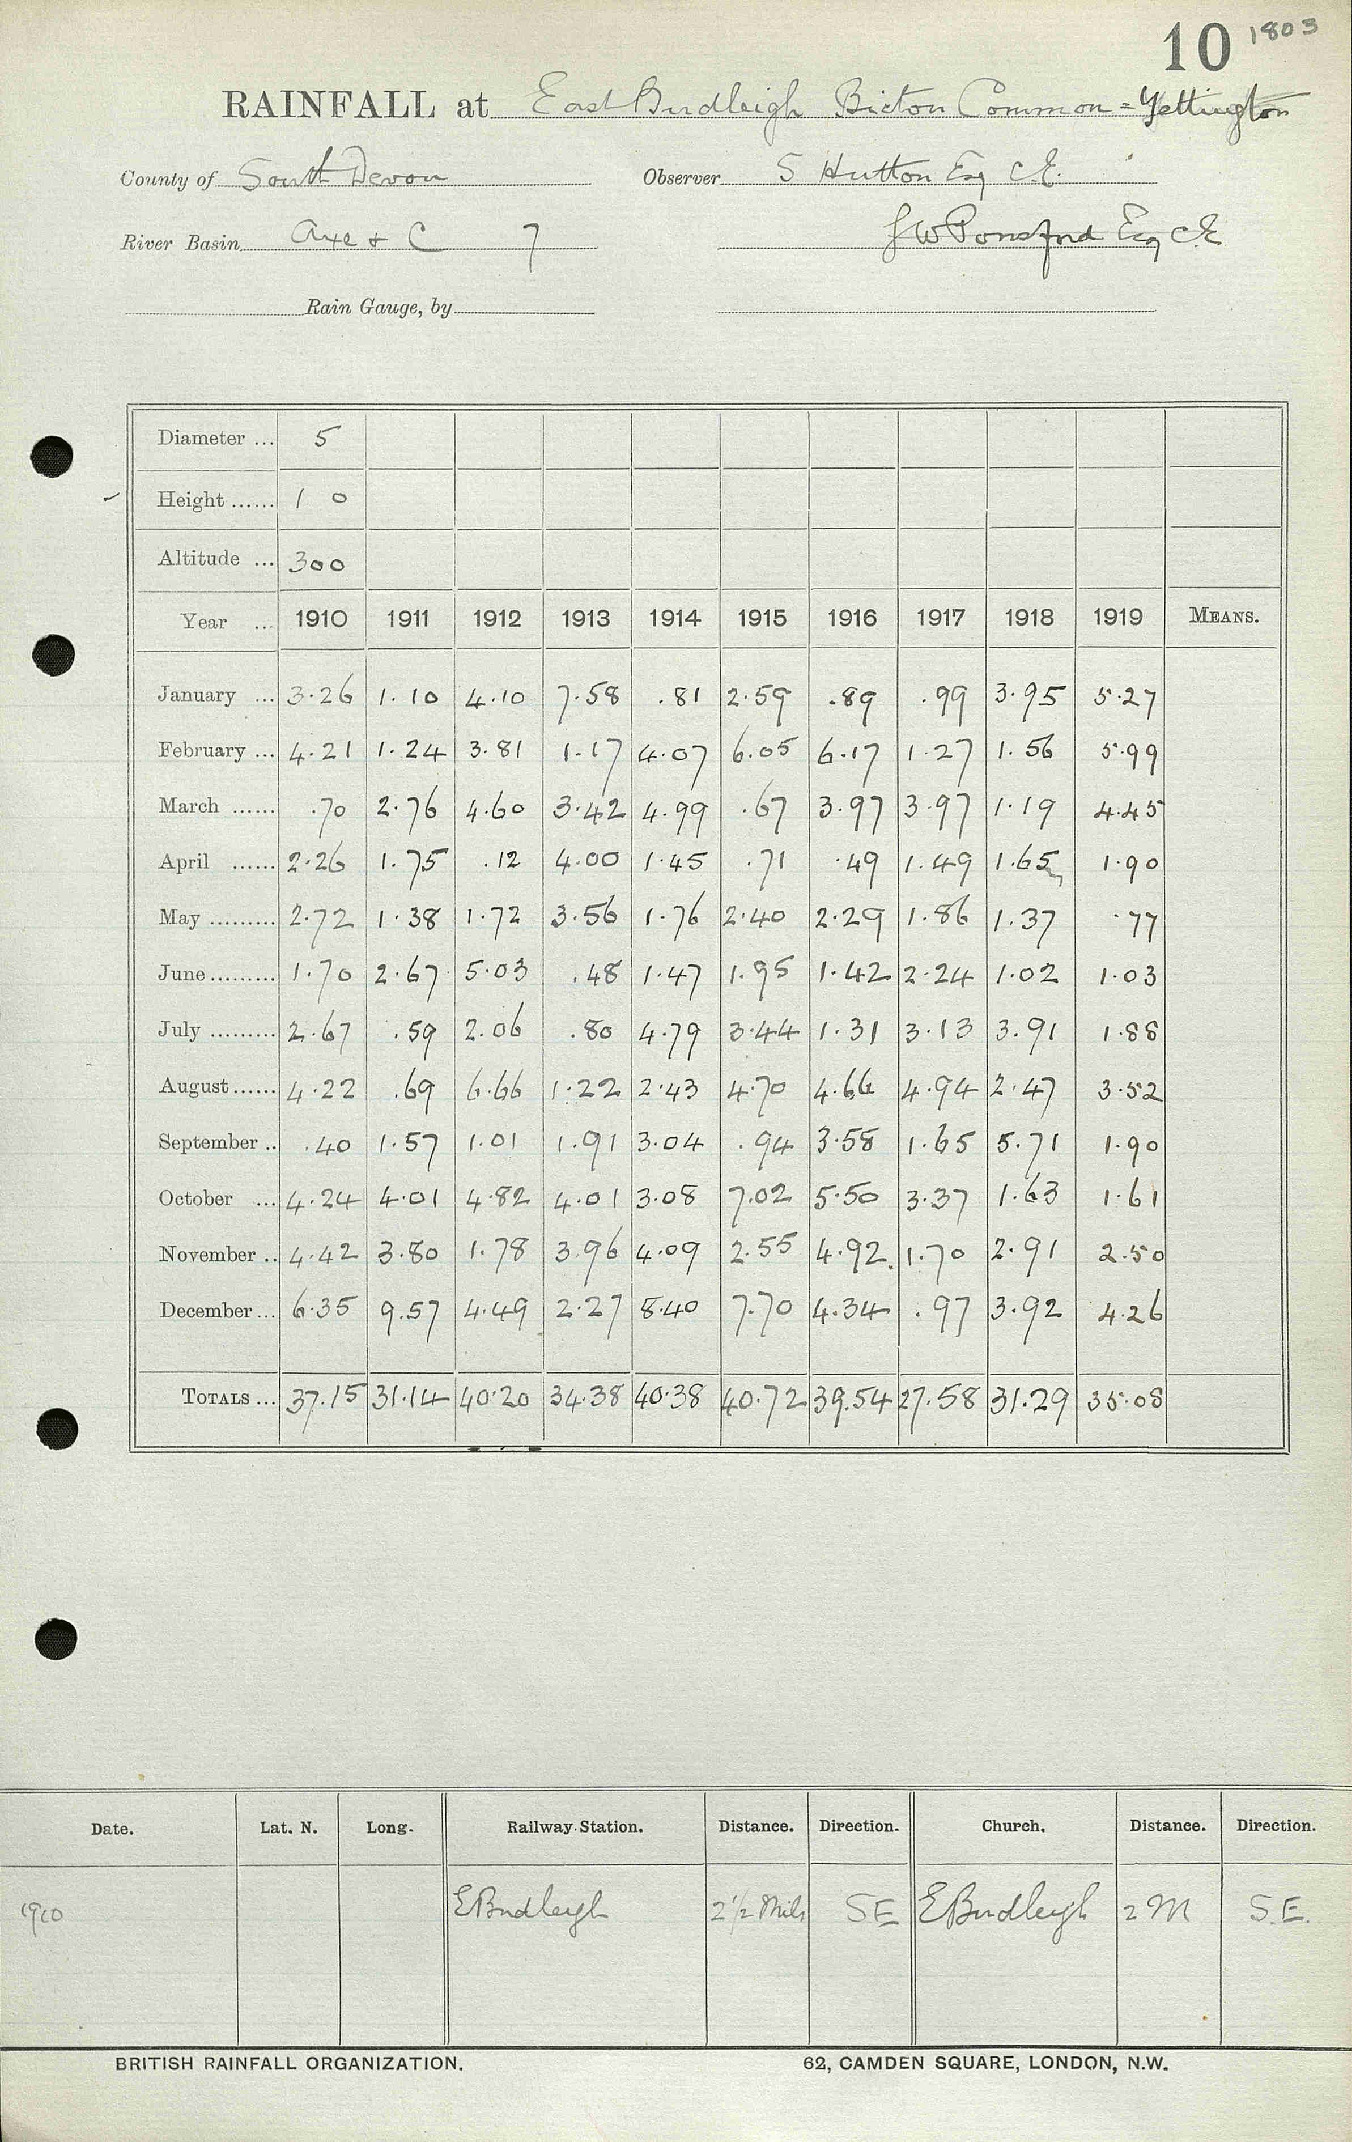 10 1803
RAINFALL at East Budleigh Bicton Common = Yettington
County of South Devon Observer S Hutton Esq C.E.
River Basin Axe & C 7 J W Ponsford Esq C E
Rain Gauge, by
Diameter ... 5
Height ...... 1 0
Altitude ... 300
Year ... 1910 1911 1912 1913 1914 1915 1916 1917 1918 1919 MEANS.
January ... 3.26 1.10 4.10 7.58 .81 2.59 .89 .99 3.95 5.27
February ... 4.21 1.24 3.81 1.17 4.07 6.05 6.17 1.27 1.56 5.99
March ...... .70 2.76 4.60 3.42 4.99 .67 3.97 3.97 1.19 4.45
April ...... 2.26 1.75 .12 4.00 1.45 .71 .49 1.49 1.65 1.90
May ......... 2.72 1.38 1.72 3.56 1.76 2.40 2.29 1.86 1.37 .77
June ......... 1.70 2.67 5.03 .48 1.47 1.95 1.42 2.24 1.02 1.03
July ......... 2.67 .59 2.06 .80 4.79 3.44 1.31 3.13 3.91 1.88
August ...... 4.22 .69 6.66 1.22 2.43 4.70 4.66 4.94 2.47 3.52
September .. .40 1.57 1.01 1.91 3.04 .94 3.58 1.65 5.71 1.90
October ... 4.24 4.01 4.82 4.01 3.08 7.02 5.50 3.37 1.63 1.61
November .. 4.42 3.80 1.78 3.96 4.09 2.55 4.92 1.70 2.91 2.50
December ... 6.35 9.57 4.49 2.27 8.40 7.70 4.34 .97 3.92 4.26
TOTALS ... 37.15 31.14 40.20 34.38 40.38 40.72 39.54 27.58 31.29 35.08
Date. Lat. N. Long. Railway Station. Distance. Direction. Church. Distance. Direction.
1910 E Budleigh 2 1/2 Mils SE E Budleigh 2 M S.E.
BRITISH RAINFALL ORGANIZATION. 62, CAMDEN SQUARE, LONDON, N.W.